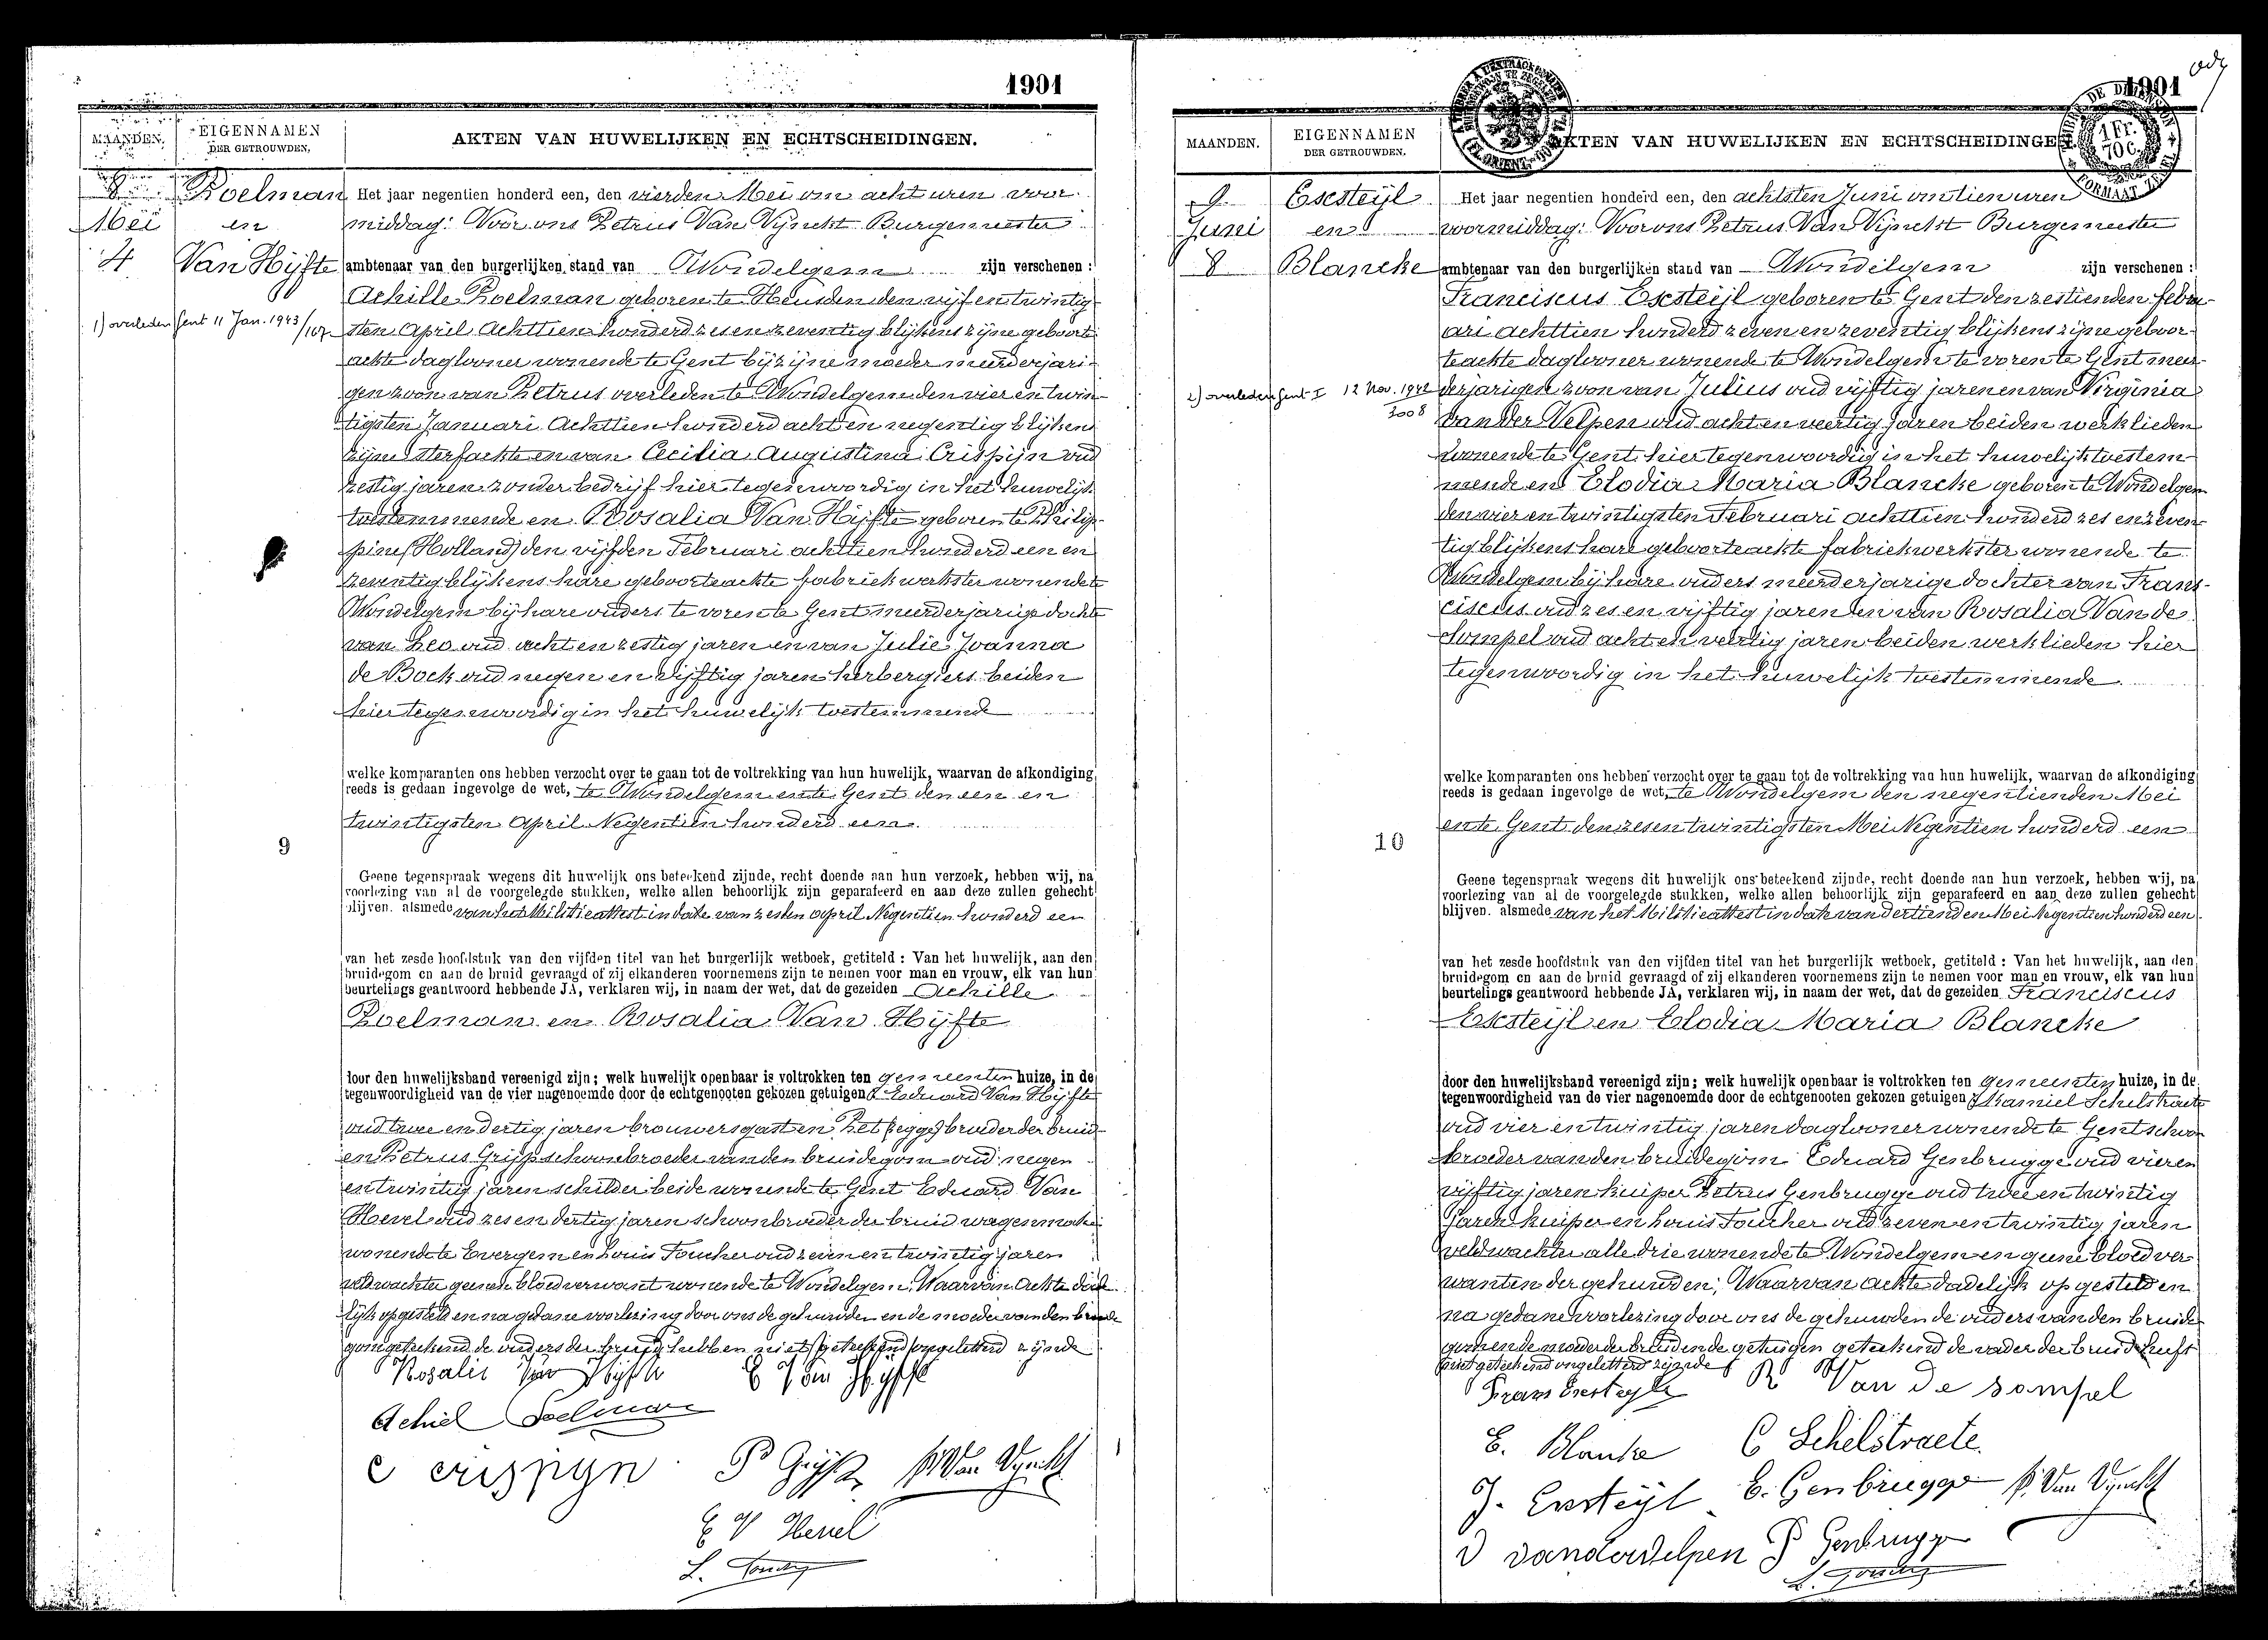 1901
MAANDEN.
EIGENNAMEN
DER GETROUWDEN.
AKTEN VAN HUWELIJKEN EN ECHTSCHEIDINGEN.
8
Mei
4
Roelman
en
Van Hijfte
1) overleden Gent 11 Jan. 1943/107
Het jaar negentien honderd een, den vierden Mei om acht uren voor-
middag: Voor ons Petrus Van Vijnckt Burgemeester
ambtenaar van den burgerlijken stand van Wondelgem zijn verschenen:
Achille Roelman geboren te Heusden den vijf en twintig-
sten April Achttien honderd zes en zeventig blijkens zijne geboorte
ackte daglooner wonende te Gent bij zijne moeder meerderjari-
gen zoon van Petrus overleden te Wondelgem den vier en twin-
tigsten Januari Achttien honderd acht en negentig blijkens
zijne sterfackte en van Cecilia Augustina Crispijn oud
zestig jaren zonder bedrijf hier tegenwoordig in het huwelijk
toestemmende en Rosalia Van Hijfte geboren te Philip-
pine (Holland) den vijfden Februari achttien honderd een en
zeventig blijkens hare geboorteackte fabriekwerkster wonende te
Wondelgem bij hare ouders te voren te Gent meerderjarige dochter
van Leo oud acht en zestig jaren en van Julie Joanna
de Bock oud negen en vijftig jaren herbergiers beiden
hier tegenwoordig in het huwelijk toestemmende
welke komparanten ons hebben verzocht over te gaan tot de voltrekking van hun huwelijk, waarvan de afkondiging
reeds is gedaan ingevolge de wet, te Wondelgem en te Gent den een en
twintigsten April Negentien honderd een.
9
Geene tegenspraak wegens dit huwelijk ons beteekend zijnde, recht doende aan hun verzoek, hebben wij, na
voorlezing van al de voorgelegde stukken, welke allen behoorlijk zijn geparafeerd en aan deze zullen gehecht
blijven. alsmede van het Militieattest in date van zesden April Negentien honderd een
van het zesde hoofdstuk van den vijfden titel van het burgerlijk wetboek, getiteld: Van het huwelijk, aan den
bruidegom en aan de bruid gevraagd of zij elkanderen voornemens zijn te nemen voor man en vrouw, elk van hun
beurtelings geantwoord hebbende JA, verklaren wij, in naam der wet, dat de gezeiden Achille
Roelman en Rosalia Van Hijfte
door den huwelijksband vereenigd zijn; welk huwelijk openbaar is voltrokken ten gemeenten huize, in de
tegenwoordigheid van de vier nagenoemde door de echtgenooten gekozen getuigen Eduard Van Hijfte
oud twee en dertig jaren brouwersgast en broeder der bruid
en Petrus Grijp schoonbroeder van den bruidegom oud negen
en twintig jaren schilder beide wonende te Gent Eduard Van
Hevel oud zes en dertig jaren schoonbroeder der bruid wagenmaker
wonende te Evergem en Louis Foucher oud zeven en twintig jaren
veldwachter geenen bloedverwant wonende te Wondelgem; Waarvan Ackte dade-
lijk opgesteld en na gedane voorlezing door ons de gehuwden en de moeder van den bruide-
gom geteekend de ouders der bruid hebben niet geteekend ongeletterd zijnde
Rosalie Van Hijfte E Van Hyfte
Achiel Roelman
C crispyn P Grijp P. Van Vynckt
E V Hevel
L. Foucher
1901
MAANDEN.
EIGENNAMEN
DER GETROUWDEN.
AKTEN VAN HUWELIJKEN EN ECHTSCHEIDINGEN.
1 Fr.
70 C.
9
Juni
8
Escsteijl
en
Blancke
2) overleden Gent I 12 Nov. 1942
3008
Het jaar negentien honderd een, den achtsten Juni om tien uren
voormiddag: Voor ons Petrus Van Vijnckt Burgemeester
ambtenaar van den burgerlijken stand van Wondelgem zijn verschenen:
Franciscus Escsteijl geboren te Gent den zestienden febru-
ari achttien honderd zeven en zeventig blijkens zijne geboor-
teackte daglooner wonende te Wondelgem te voren te Gent meer-
derjarigen zoon van Julius oud vijftig jaren en van Virginia
Van der Velpen oud acht en veertig jaren beiden werklieden
wonende te Gent hier tegenwoordig in het huwelijk toestem-
mende en Elodia Maria Blancke geboren te Wondelgem
den vier en twintigsten Februari achttien honderd zes en zeven-
tig blijkens hare geboorteackte fabriekwerkster wonende te
Wondelgem bij hare ouders meerderjarige dochter van Fran-
ciscus oud zes en vijftig jaren en van Rosalia Van de
Sompel oud acht en veertig jaren beiden werklieden hier
tegenwoordig in het huwelijk toestemmende.
welke komparanten ons hebben verzocht over te gaan tot de voltrekking van hun huwelijk, waarvan de afkondiging
reeds is gedaan ingevolge de wet, te Wondelgem den negentienden Mei
en te Gent den zes en twintigsten Mei Negentien honderd een
10
Geene tegenspraak wegens dit huwelijk ons beteekend zijnde, recht doende aan hun verzoek, hebben wij, na
voorlezing van al de voorgelegde stukken, welke allen behoorlijk zijn geparafeerd en aan deze zullen gehecht
blijven. alsmede van het Militieattest in date van dertienden Mei Negentien honderd een
van het zesde hoofdstuk van den vijfden titel van het burgerlijk wetboek, getiteld: Van het huwelijk, aan den
bruidegom en aan de bruid gevraagd of zij elkanderen voornemens zijn te nemen voor man en vrouw, elk van hun
beurtelings geantwoord hebbende JA, verklaren wij, in naam der wet, dat de gezeiden Franciscus
Escsteijl en Elodia Maria Blancke
door den huwelijksband vereenigd zijn; welk huwelijk openbaar is voltrokken ten gemeenten huize, in de
tegenwoordigheid van de vier nagenoemde door de echtgenooten gekozen getuigen Kamiel Schelstraete
oud vier en twintig jaren daglooner wonende te Gent schoon-
broeder van den bruidegom Eduard Genbrugge oud vier en
vijftig jaren kuiper Petrus Genbrugge oud twee en twintig
jaren kuiper en Louis Foucher oud zeven en twintig jaren
veldwachter alle drie wonende te Wondelgem en geene bloedver-
wanten der gehuwden; Waarvan ackte dadelijk opgesteld en
na gedane voorlezing door ons de gehuwden de ouders van den bruide-
gom en de moeder der bruid en de getuigen geteekend de vader der bruid heeft
niet geteekend ongeletterd zijnde
Frans Escsteyl R Van De sompel
E. Blancke C Schelstraete.
J. Ecsteijl E. Genbrugge P. Van Vynckt
V vandervelpen P Genbrugge
L. Foucher